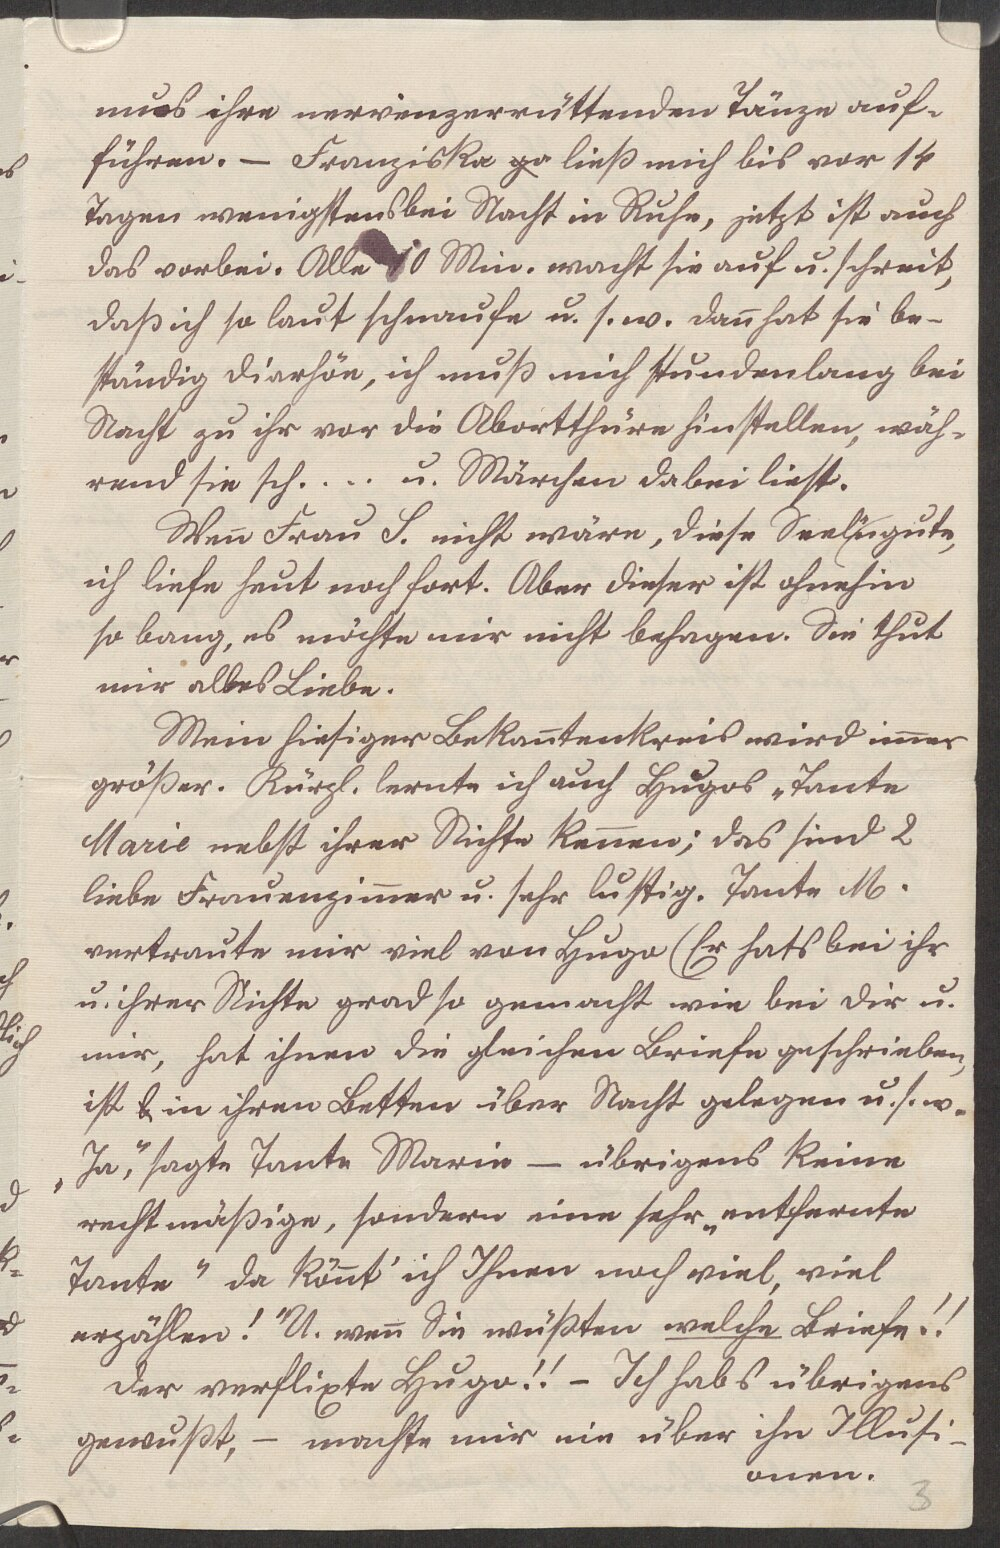 mus ihre nervenzerrüttenden Tänze auf-
führen. — Franziska ga ließ mich bis vor 14
Tagen wenigstens bei Nacht in Ruhe, jetzt ist auch
das vorbei. Alle 10 Min. wacht sie auf u. schreit,
daß ich so laut schnaufe u. s. w. dan̄ hat sie be-
ständig Diarhöe, ich muß mich stundenlang bei
Nacht zu ihr vor die Abortthüre hinstellen, wäh-
rend sie sch.... u. Märchen dabei liest.
Wen̄ Frau S. nicht wäre, diese Seelengute,
ich liefe heut noch fort. Aber dieser ist ohnehin
so bang, es möchte mir nicht behagen. Sie thut
mir alles Liebe.
Mein hiesiger Bekan̄tenkreis wird im̄er
größer. Kürzl. lernte ich auch Hugos „Tante
Marie nebst ihrer Nichte ken̄en; das sind 2
liebe Frauenzim̄er u. sehr lustig. Tante M.
vertraute mir viel von Hugo (Er hats bei ihr
u. ihrer Nichte grad so gemacht wie bei Dir u.
mir, hat ihnen die gleichen Briefe geschrieben,
ist in ihren Betten über Nacht gelegen u. s. w.
„Ja," sagte Tante Marie — übrigens keine
rechtmäßige, sondern eine sehr „entfernte
Tante" da kön̄t' ich Ihnen noch viel, viel
erzählen! "U. wen̄ Sie wüßten welche Briefe!!
Der verflixte Hugo!! - Ich habs übrigens
gewußt, — machte mir nie über ihn Illusi-
onen.
3